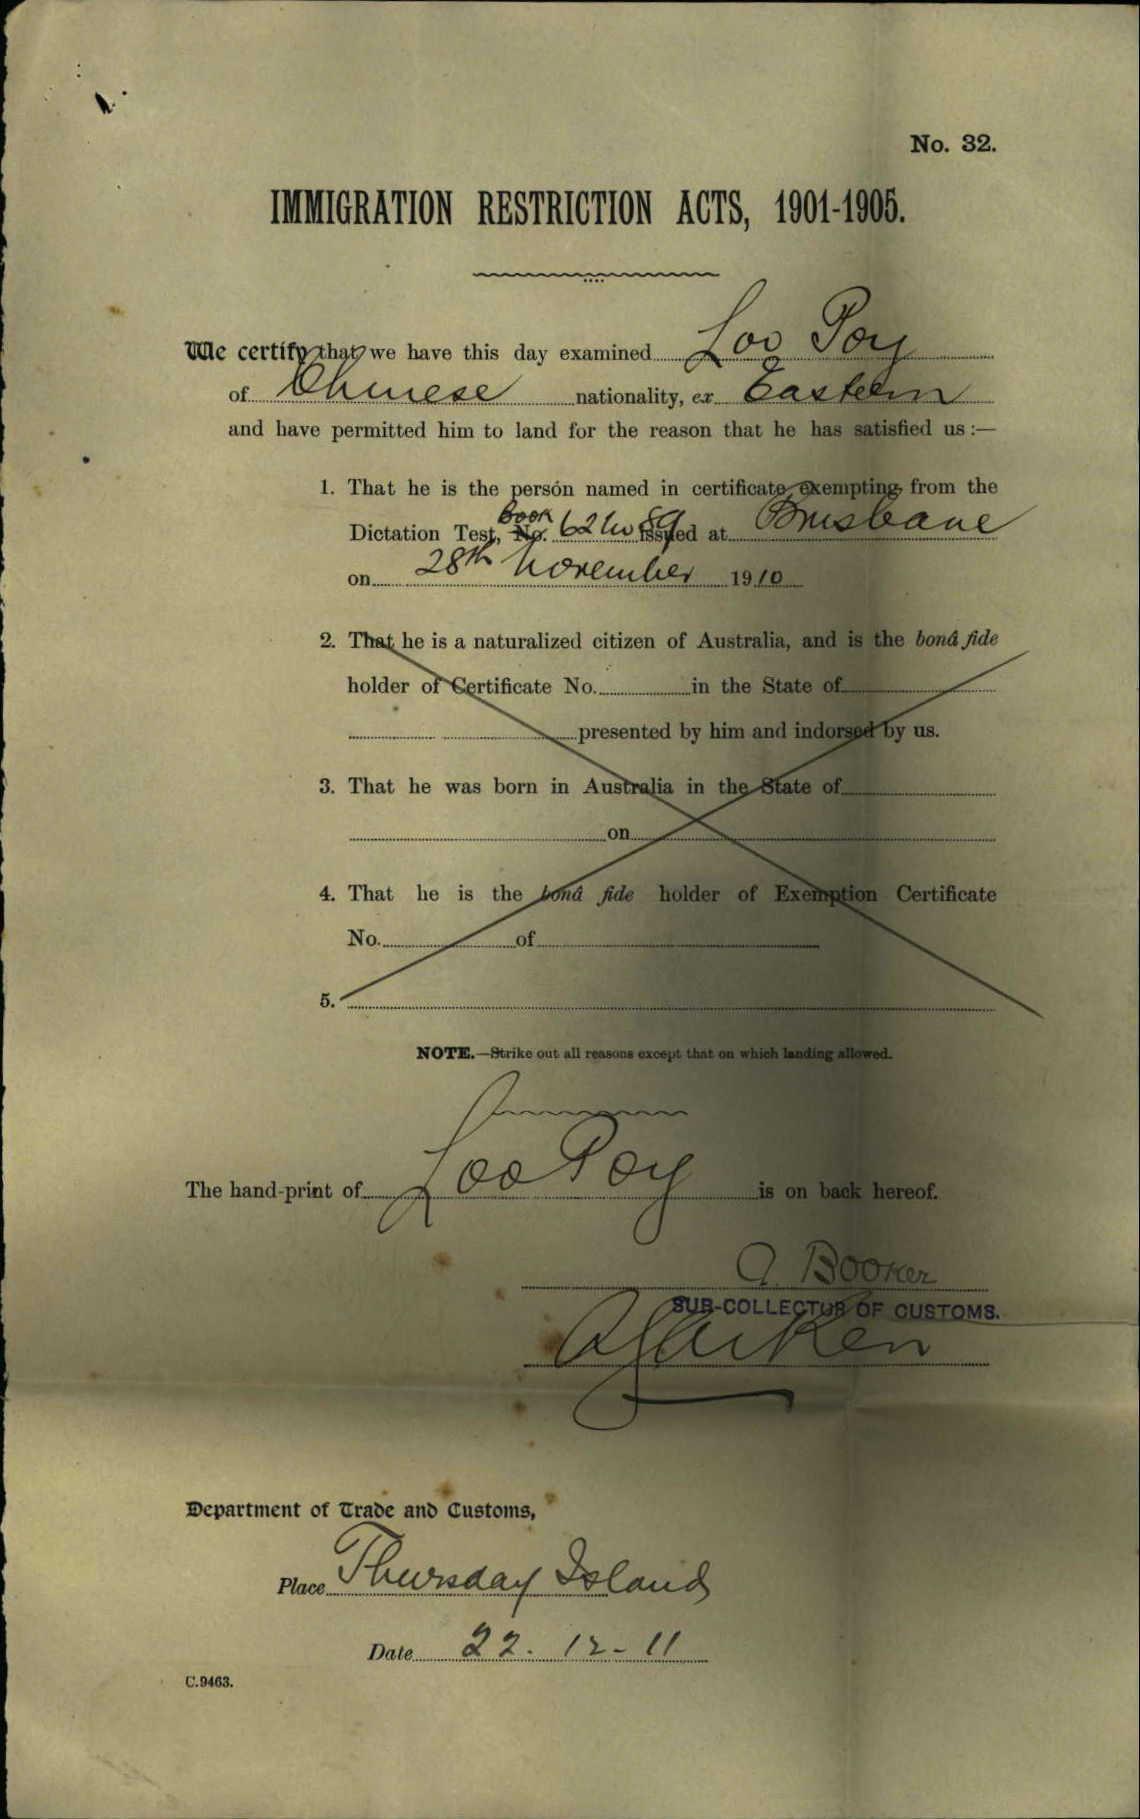 No. 32.
IMMIGRATION RESTRICTION ACTS, 1901-1905.
We certify that we have this day examined Loo Poy
of Chinese nationality, ex Eastern
and have permitted him to land for the reason that he has satisfied us:—
1. That he is the person named in certificate exempting from the
Book
Dictation Test, No. 62 No 89 issued at Brisbane
on 28th November 1910
2. That he is a naturalized citizen of Australia, and is the bonâ fide
holder of Certificate No. in the State of
presented by him and indorsed by us.
3. That he was born in Australia in the State of
on
4. That he is the bonâ fide holder of Exemption Certificate
No. of
5.
NOTE.—Strike out all reasons except that on which landing allowed.
The hand-print of Loo Poy is on back hereof.
A. Booker
SUB-COLLECTOR OF CUSTOMS.
Aitken
Department of Trade and Customs,
Place Thursday Island
Date 22. 12 - 11
C.9463.